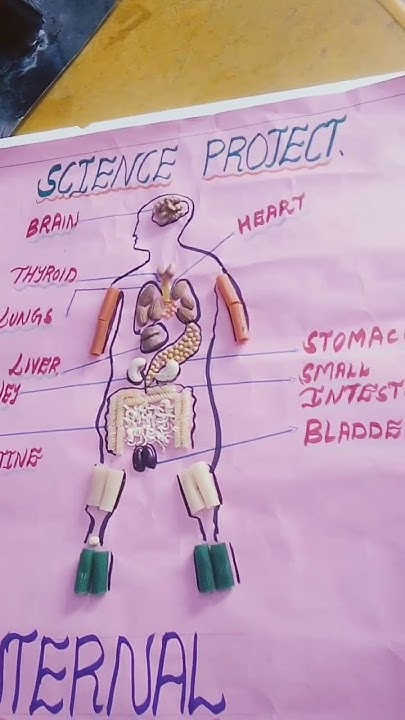 SCIENCE PROJECT.
BRAIN
HEART
THYROID
LUNGS
LIVER
STOMAC
EY
SMALL
INTEST
BLADDE
TINE
TERNAL